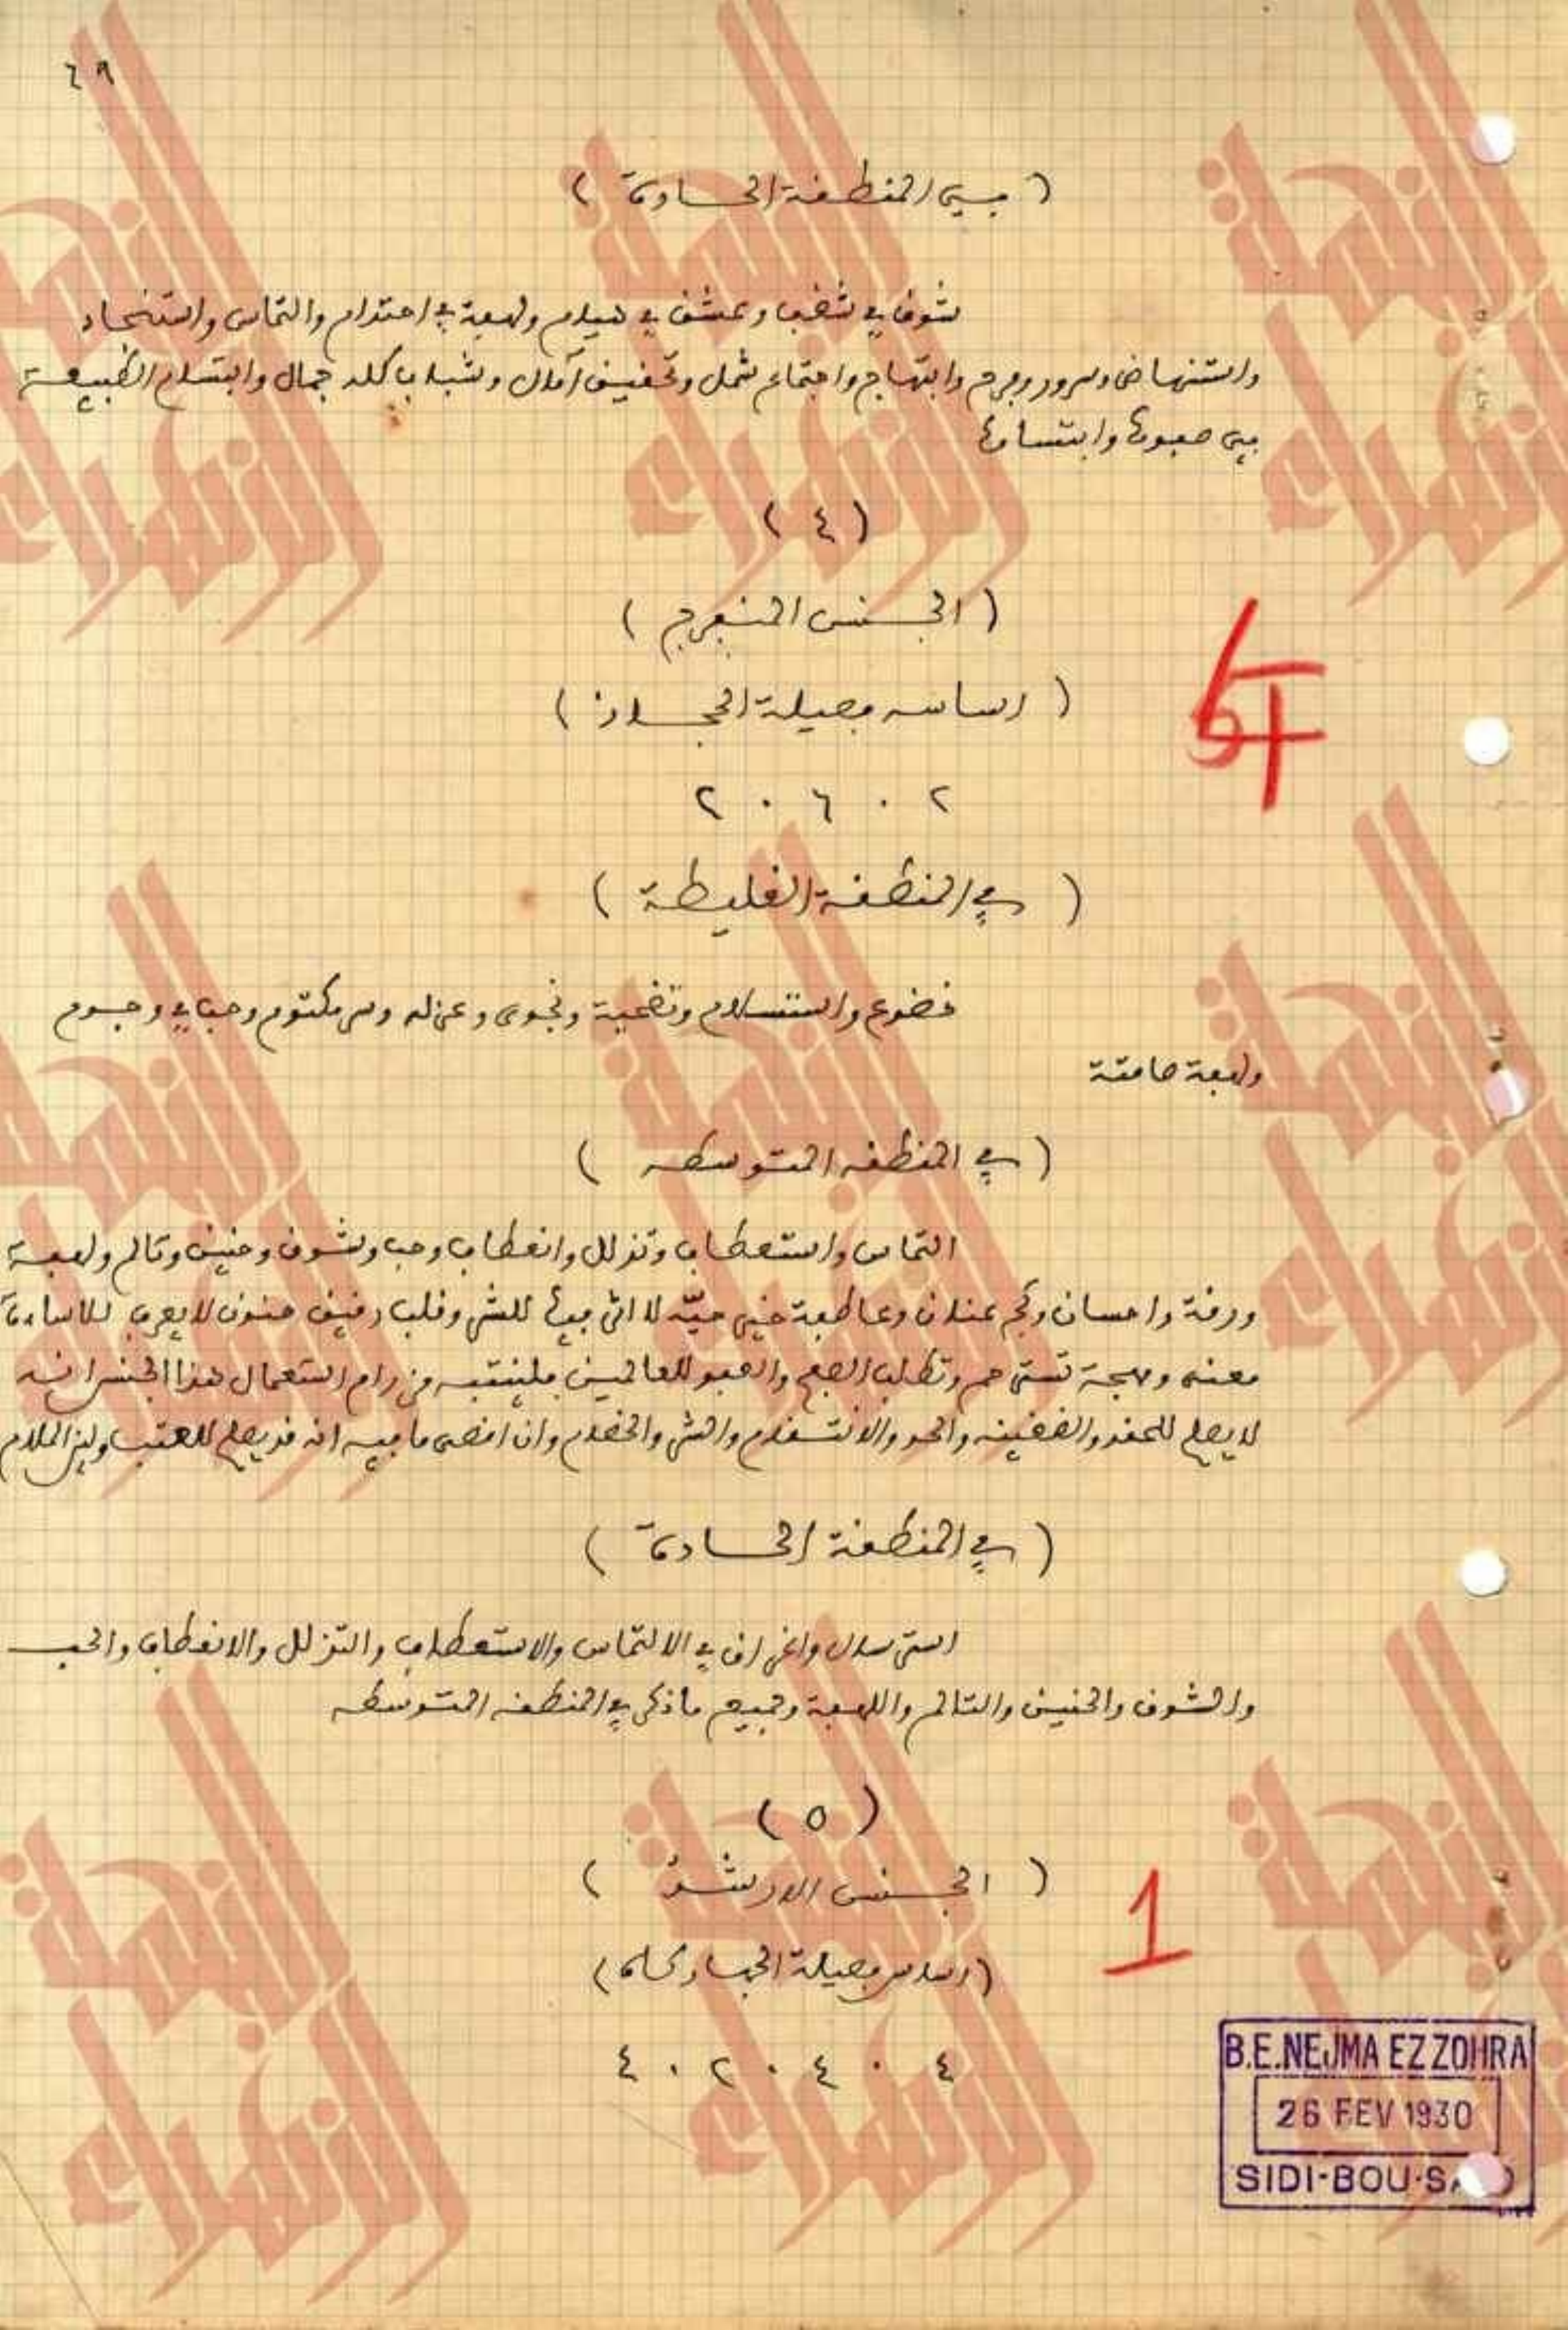 ٦٩
( في المنطقة الحادة )
شوق في شغب وعشق في هيام ولهفة في احتدام والتماس واستنجاد
واستنهاض وسرور وفرح وابتهاج واجتماع شمل وتحقيق آمال وشباب كله جمال وابتسام الطبيعة
في صفوها وابتسامها
( ٤ )
( الجنس المنفرج )
( اساسه فصيلة الحجاز )
٢ . ٦ . ٢
( في المنطقة الغليظة )
خضوع واستسلام وتضحية ونجوى وعزله وسر مكتوم وحب في وجوم
ولهفة صامتة
( في المنطقه المتوسطه )
التماس واستعطاف وتذلل وانعطاف وحب وشوق وحنين وتالم ولهفة
ورقة واحسان وعاطفة خير حيّه لا اثر فيها للشر وقلب رقيق حنون لا يعرف للاساءة
معنى ومهجة تسترحم وتطلب الصفح والعفو للعالمين فلينتبه من رام استعمال هذا الجنس انه
لا يصلح للحقد والضغينه والانتقام والشر والخصام وان اقصى ما فيه انه قد يصلح للعتب ولين الملام
( في المنطقة الحادة )
استرسال واغراق في الالتماس والاستعطاف والتذلل والانعطاف والحب
والشوق والحنين والتالم واللهفة وجميع ما ذكر في المنطقه المتوسطه
( ٥ )
1
( الجنس الارشذ )
(اساس فصيلة الجهاركاه)
٤ . ٤ . ٢ . ٤
B.E.NEJMA EZZOHRA
26 FEV 1930
SIDI-BOU-SA
النجمة الزهراء